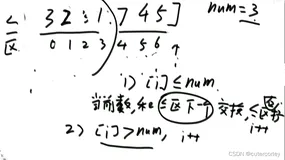 ≤区 3 2 1 7 4 5] num=3
0 1 2 3 4 5 6
1) [i]≤num
当前数,和≤区下一个交换,≤区扩
i++
2) [i]>num, i++
CSDN @cutercorley